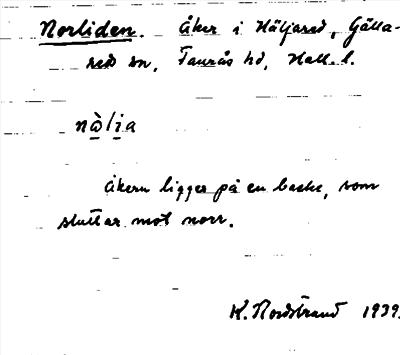 Norliden. Åker i Häljared, Gälla-
red sn, Faurås hd, Hall. l.
nàlia
Åkern ligger på en backe, som
sluttar mot norr.
K. Nordstrand 1939.